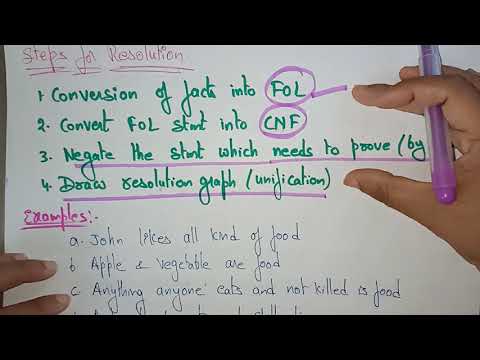 Steps for Resolution
1. Conversion of facts into FOL
2. Convert FOL stmt into CNF
3. Negate the stmt which needs to prove (by
4. Draw resolution graph (unification)
Examples:-
a. John likes all kind of food
b. Apple & vegetable are food
c. Anything anyone eats and not killed is food